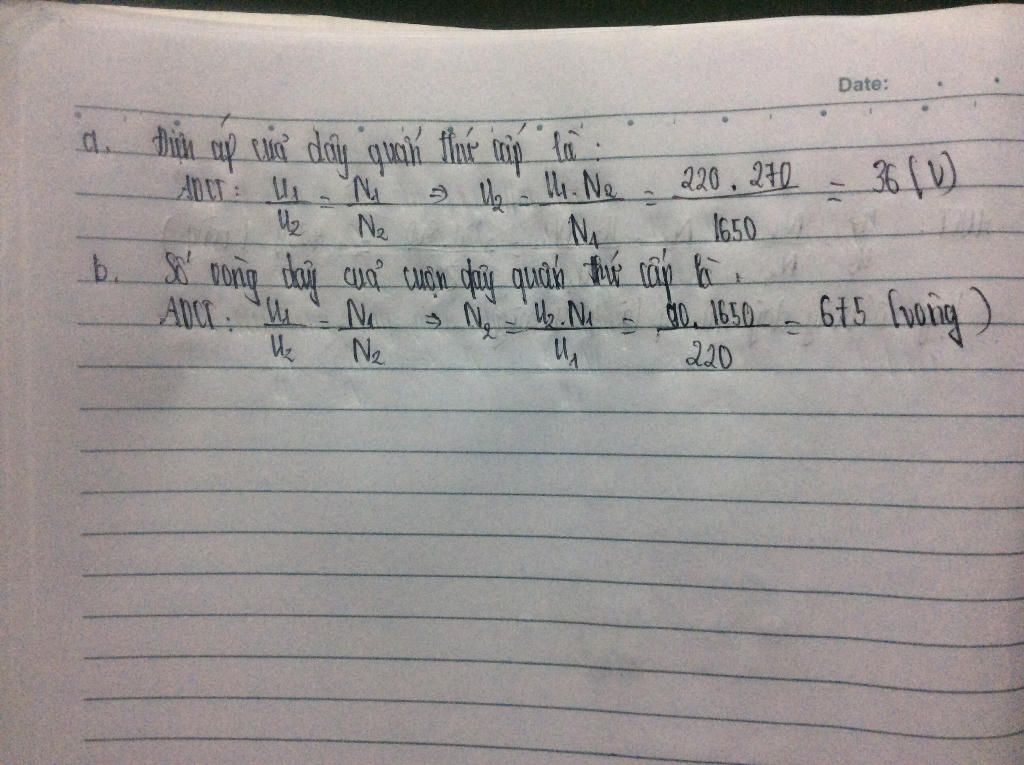 Date:
a. Điện áp của dây quấn thứ cấp là :
ADCT : U1/U2 = N1/N2 ⇒ U2 = U1.N2/N1 = 220 . 270/1650 = 36 (V)
b. Số vòng dây của cuộn dây quấn thứ cấp là :
ADCT : U1/U2 = N1/N2 ⇒ N2 = U2.N1/U1 = 90. 1650/220 = 675 (vòng)